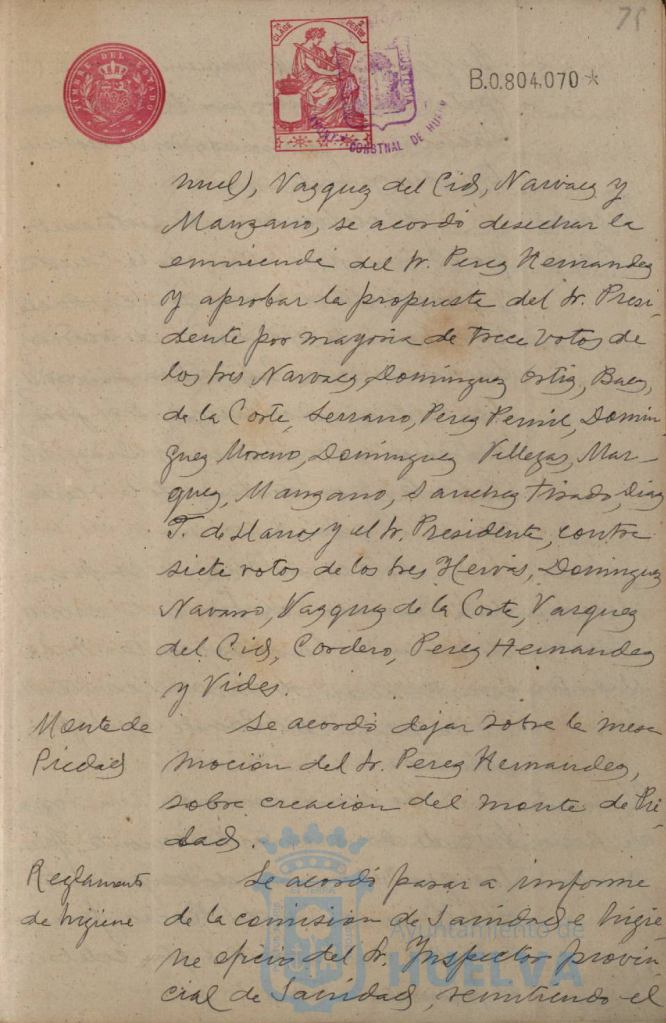 75
TIMBRE DEL ESTADO
CLASE
PESETAS
CONSTNAL DE HUELV
B.0.804.070*
nuel), Vazquez del Cid, Narvaez y
Manzano, se acordó desechar la
enmienda del Sr. Perez Hernandez
y aprobar la propuesta del Sr. Presi-
dente por mayoria de trece votos de
los sres Narvaez, Dominguez Ortiz, Baez,
de la Corte, Serrano, Perez Pernil, Domin-
guez Moreno, Dominguez Villegas, Mar-
quez, Manzano, Sanchez Tirado, Diaz
F. de Llanos y el Sr. Presidente, contra
siete votos de los sres Hervás, Dominguez
Navarro, Vazquez de la Corte, Vazquez
del Cid, Cordero, Perez Hernandez
y Vides.
Monte de
Piedad
Se acordó dejar sobre la mesa
moción del Sr. Perez Hernandez,
sobre creación del Monte de Pie-
dad.
Reglamento
de higiene
Se acordó pasar a informe
de la comision de Sanidad e higie-
ne oficio del Sr. Inspector provin-
cial de Sanidad, remitiendo el
Ayuntamiento de
HUELVA